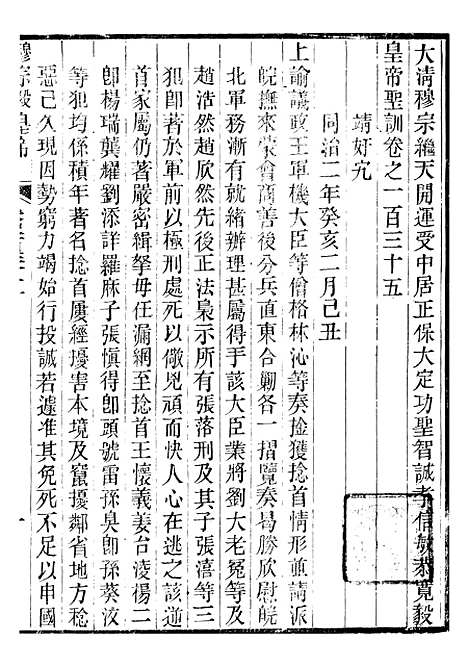 大清穆宗繼天開運受中居正保大定功聖智誠孝信敏恭寬毅
皇帝聖訓卷之一百三十五
靖奸宄
同治二年癸亥二月己丑
上諭議政王軍機大臣等僧格林沁等奏捦獲捻首情形並請派
皖撫來蒙會商善後分兵直東合勦各一摺覽奏曷勝欣慰皖
北軍務漸有就緒辦理甚屬得手該大臣業將劉大老冤等及
趙浩然趙欣然先後正法梟示所有張落刑及其子張漋等三
犯卽著於軍前以極刑處死以儆兇頑而快人心在逃之該逆
首家屬仍著嚴密緝拏毋任漏網至捻首王懷義姜台淩楊二
卽楊瑞龔耀劉添詳羅麻子張慎得卽頭號雷孫臭卽孫葵汶
等犯均係積年著名捻首屢經擾害本境及竄擾鄰省地方稔
惡已久現因勢窮力竭始行投誠若遽准其免死不足以申國
穆宗毅皇帝
一